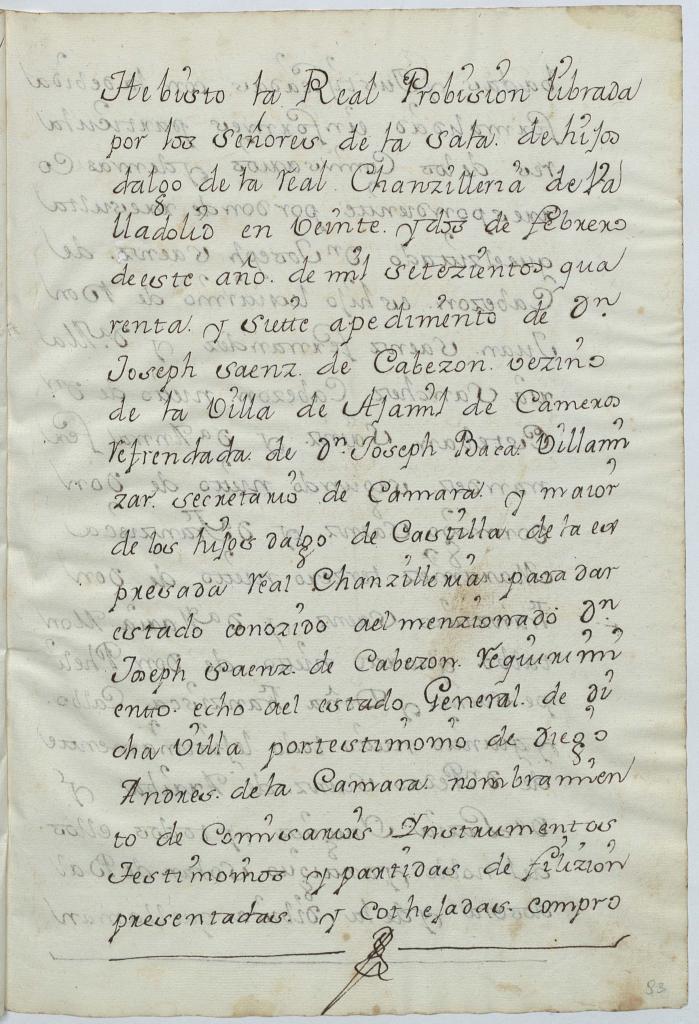 He bisto la Real Probision librada
por los Señores de la Sala. de hijos
dalgo de la real. Chanzilleria de Va
lladolid en Veinte. y dos de febrero
de este año. de mil setezientos qua
renta. y siette apedimento de Dn.
Joseph Saenz. de Cabezon. vezino
de la Villa de Ajamil de Cameros
refrendada. de Dn. Joseph Baca. Villami
zar. secretario de Camara. y maior
de los hijos dalgo de Castilla de la ex
presada real Chanzilleria para dar
estado conozido ael menzionado Dn.
Joseph Saenz. de Cabezon. requirimi
ento. echo ael estado General. de di
cha Villa por testimonio de Diego
Andres. de la Camara nombramien
to de Comisarios Ynstrumentos
Testimonios y partidas de filizion
presentadas. y Cothejadas. compro
83